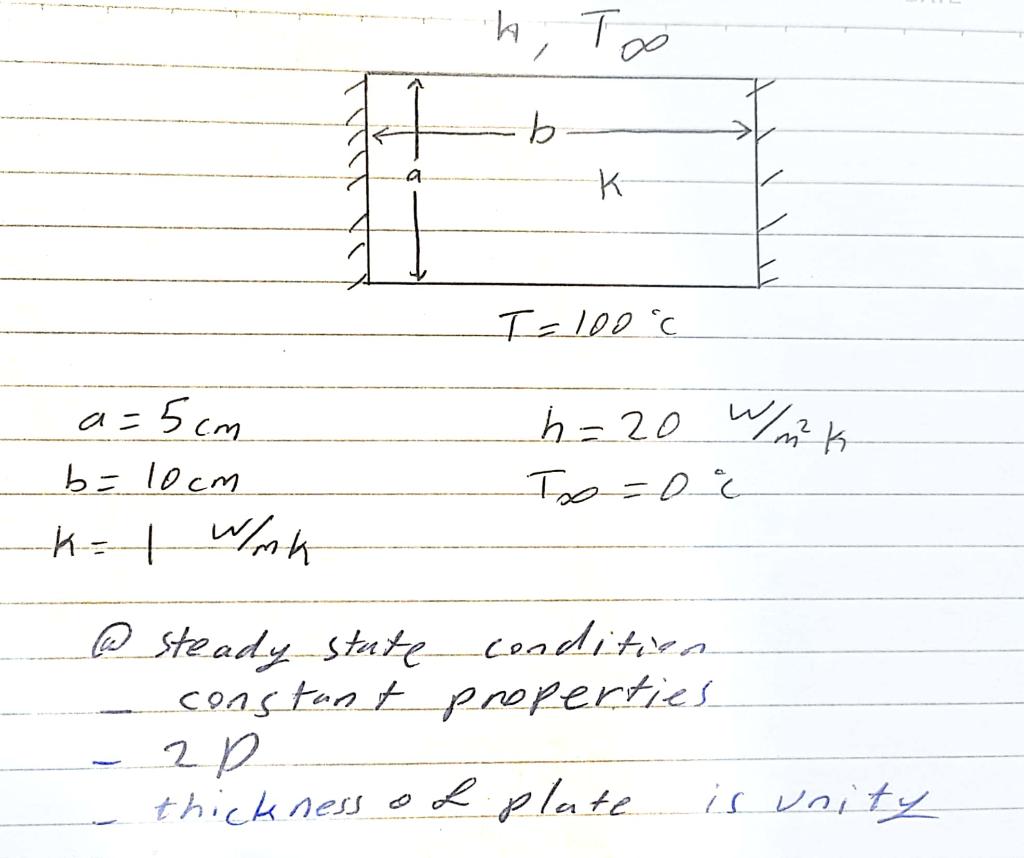 h, T∞
b
a
K
T = 100 °c
a = 5 cm
h = 20 W/m² k
b = 10 cm
T∞ = 0 °c
K = 1 W/mk
@ steady state condition
- constant properties
- 2D
- thickness of plate is unity